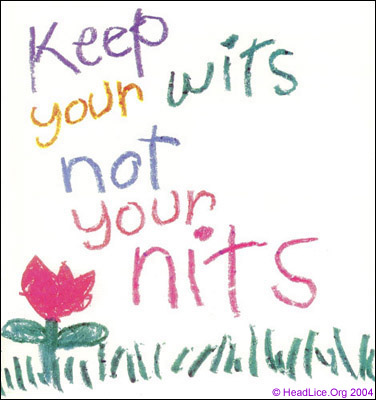 Keep
your wits
not
your
nits
© HeadLice.Org 2004